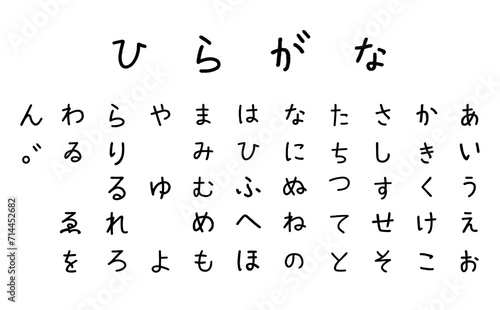 ひらがな
あいうえお
かきくけこ
さしすせそ
たちつてと
なにぬねの
はひふへほ
まみむめも
やゆよ
らりるれろ
わゐゑを
ん゜゛
Adobe Stock | #714452682